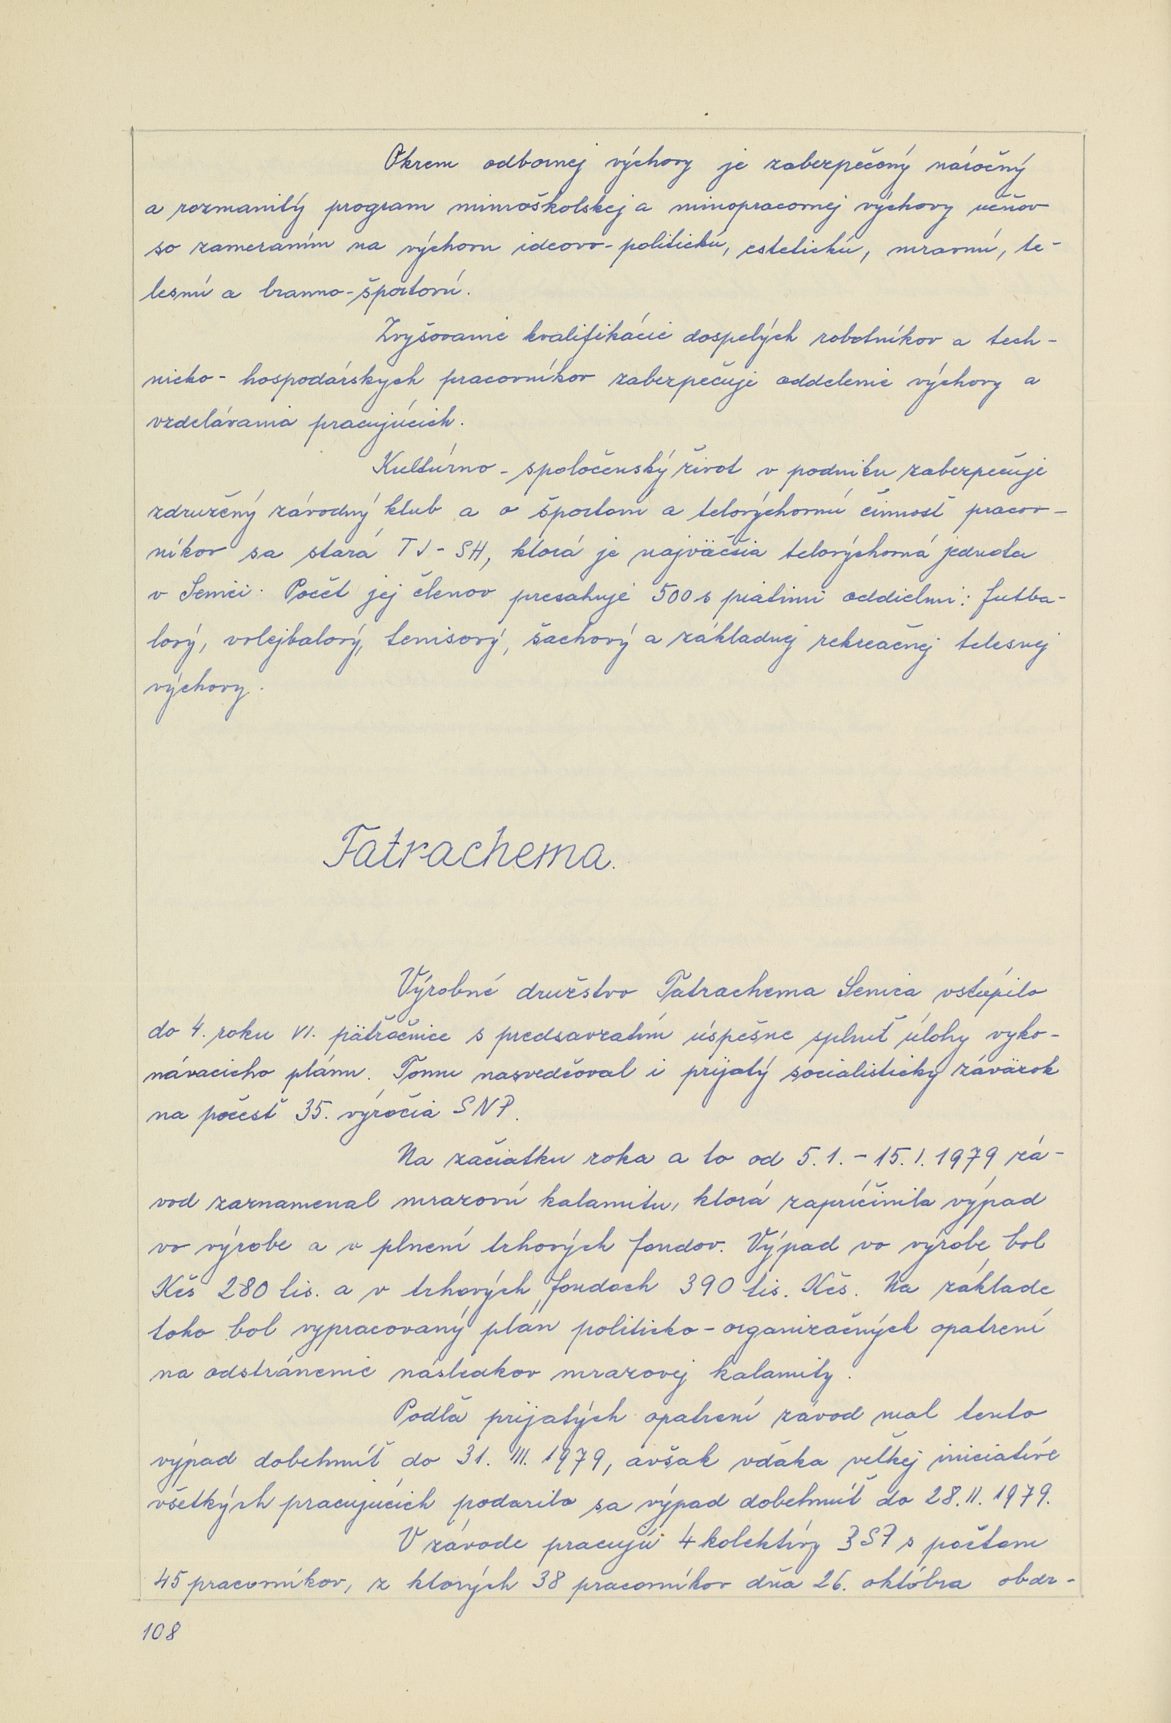 Okrem odbornej výchovy je zabezpečený náročný
a rozmanitý program mimoškolskej a mimopracovnej výchovy učňov
so zameraním na výchovu ideovo-politickú, estetickú, mravnú, te-
lesnú a branno-športovú.
Zvyšovanie kvalifikácie dospelých robotníkov a tech-
nicko-hospodárskych pracovníkov zabezpečuje oddelenie výchovy a
vzdelávania pracujúcich.
Kultúrno-spoločenský život v podniku zabezpečuje
združený závodný klub a o športovú a telovýchovnú činnosť pracov-
níkov sa stará TJ-SH, ktorá je najväčšia telovýchovná jednota
v Senici. Počet jej členov presahuje 500 s piatimi oddielmi: futba-
lový, volejbalový, tenisový, šachový a základnej rekreačnej telesnej
výchovy.
Tatrachema.
Výrobné družstvo Tatrachema Senica vstúpilo
do 4. roku VI. päťročnice s predsavzatím úspešne splniť úlohy vyko-
návacieho plánu. Tomu nasvedčoval i prijatý socialistický záväzok
na počesť 35. výročia SNP.
Na začiatku roka a to od 5.1.-15.1.1979 zá-
vod zaznamenal mrazovú kalamitu, ktorá zapríčinila výpad
vo výrobe a v plnení trhových fondov. Výpad vo výrobe bol
Kčs 280 tis. a v trhových fondoch 390 tis. Kčs. Na základe
toho bol vypracovaný plán politicko-organizačných opatrení
na odstránenie následkov mrazovej kalamity.
Podľa prijatých opatrení závod mal tento
výpad dobehnúť do 31. III. 1979, avšak vďaka veľkej iniciatíve
všetkých pracujúcich podarilo sa výpad dobehnúť do 28.II.1979.
V závode pracujú 4 kolektívy BSP s počtom
45 pracovníkov, z ktorých 38 pracovníkov dňa 26. októbra obdr-
108